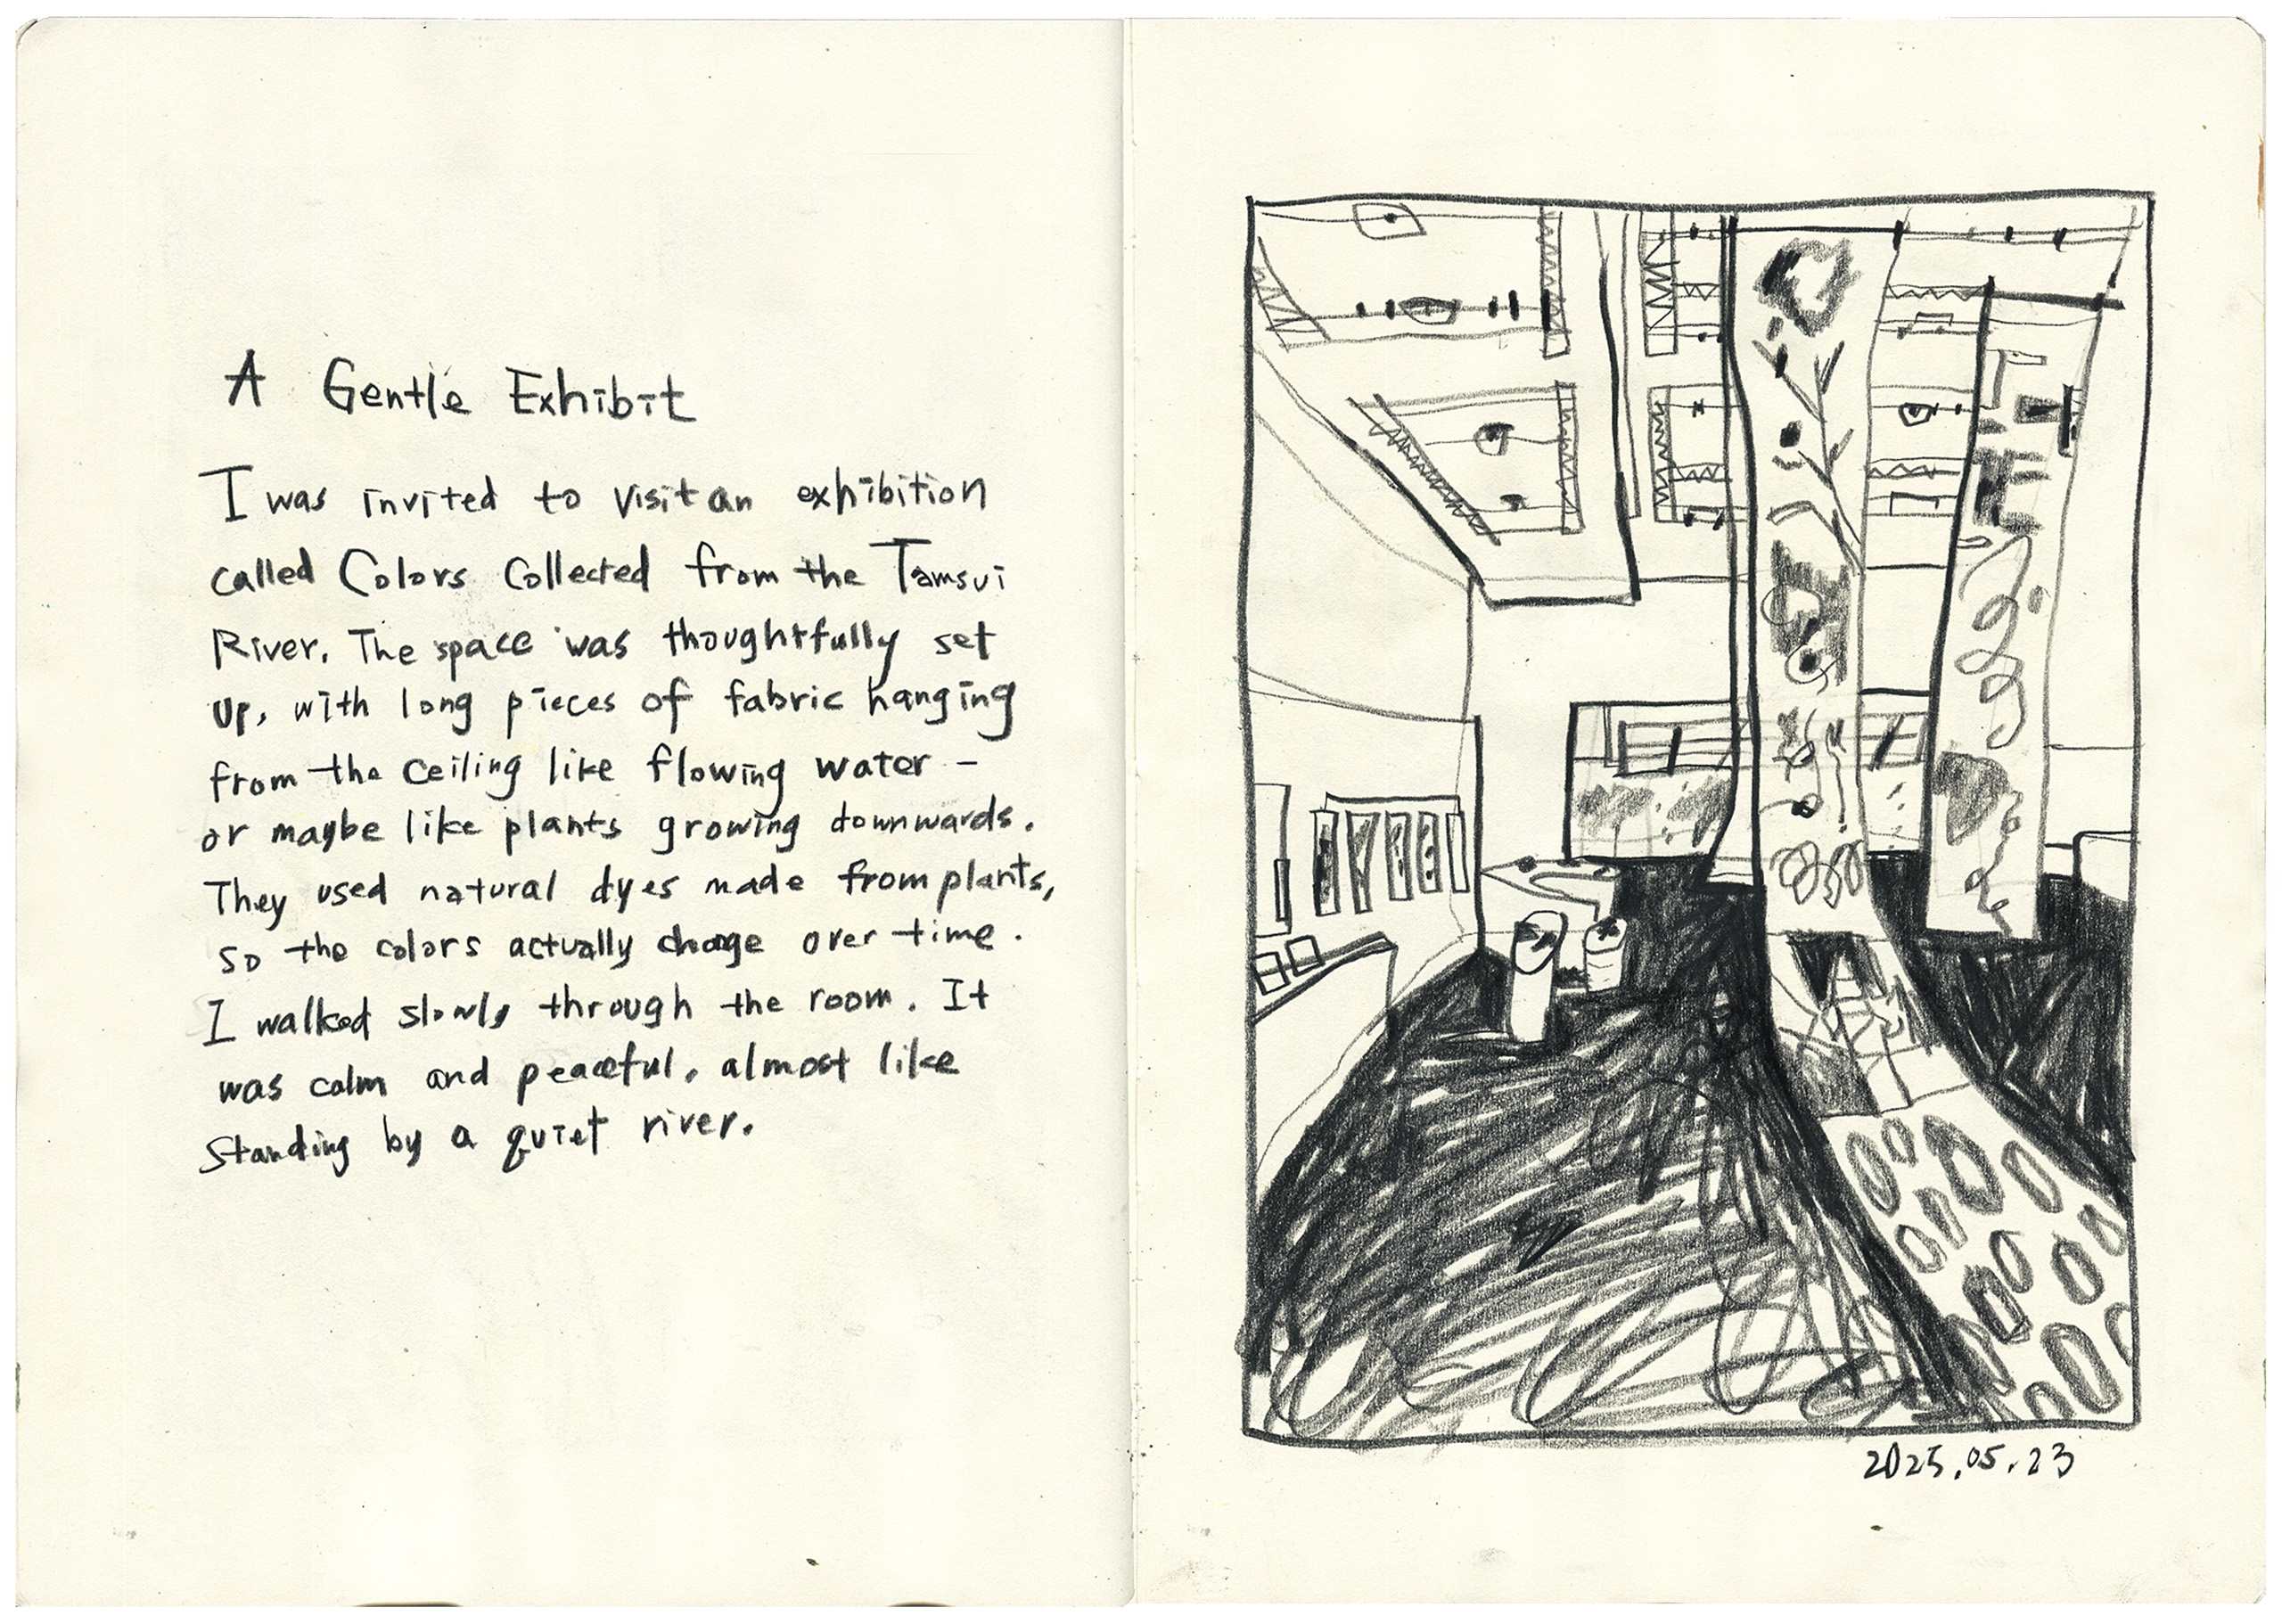 A Gentle Exhibit
I was invited to visit an exhibition
called Colors Collected from the Tamsui
River. The space was thoughtfully set
up, with long pieces of fabric hanging
from the ceiling like flowing water -
or maybe like plants growing downwards.
They used natural dyes made from plants,
so the colors actually change over time.
I walked slowly through the room. It
was calm and peaceful, almost like
standing by a quiet river.
2025.05.23